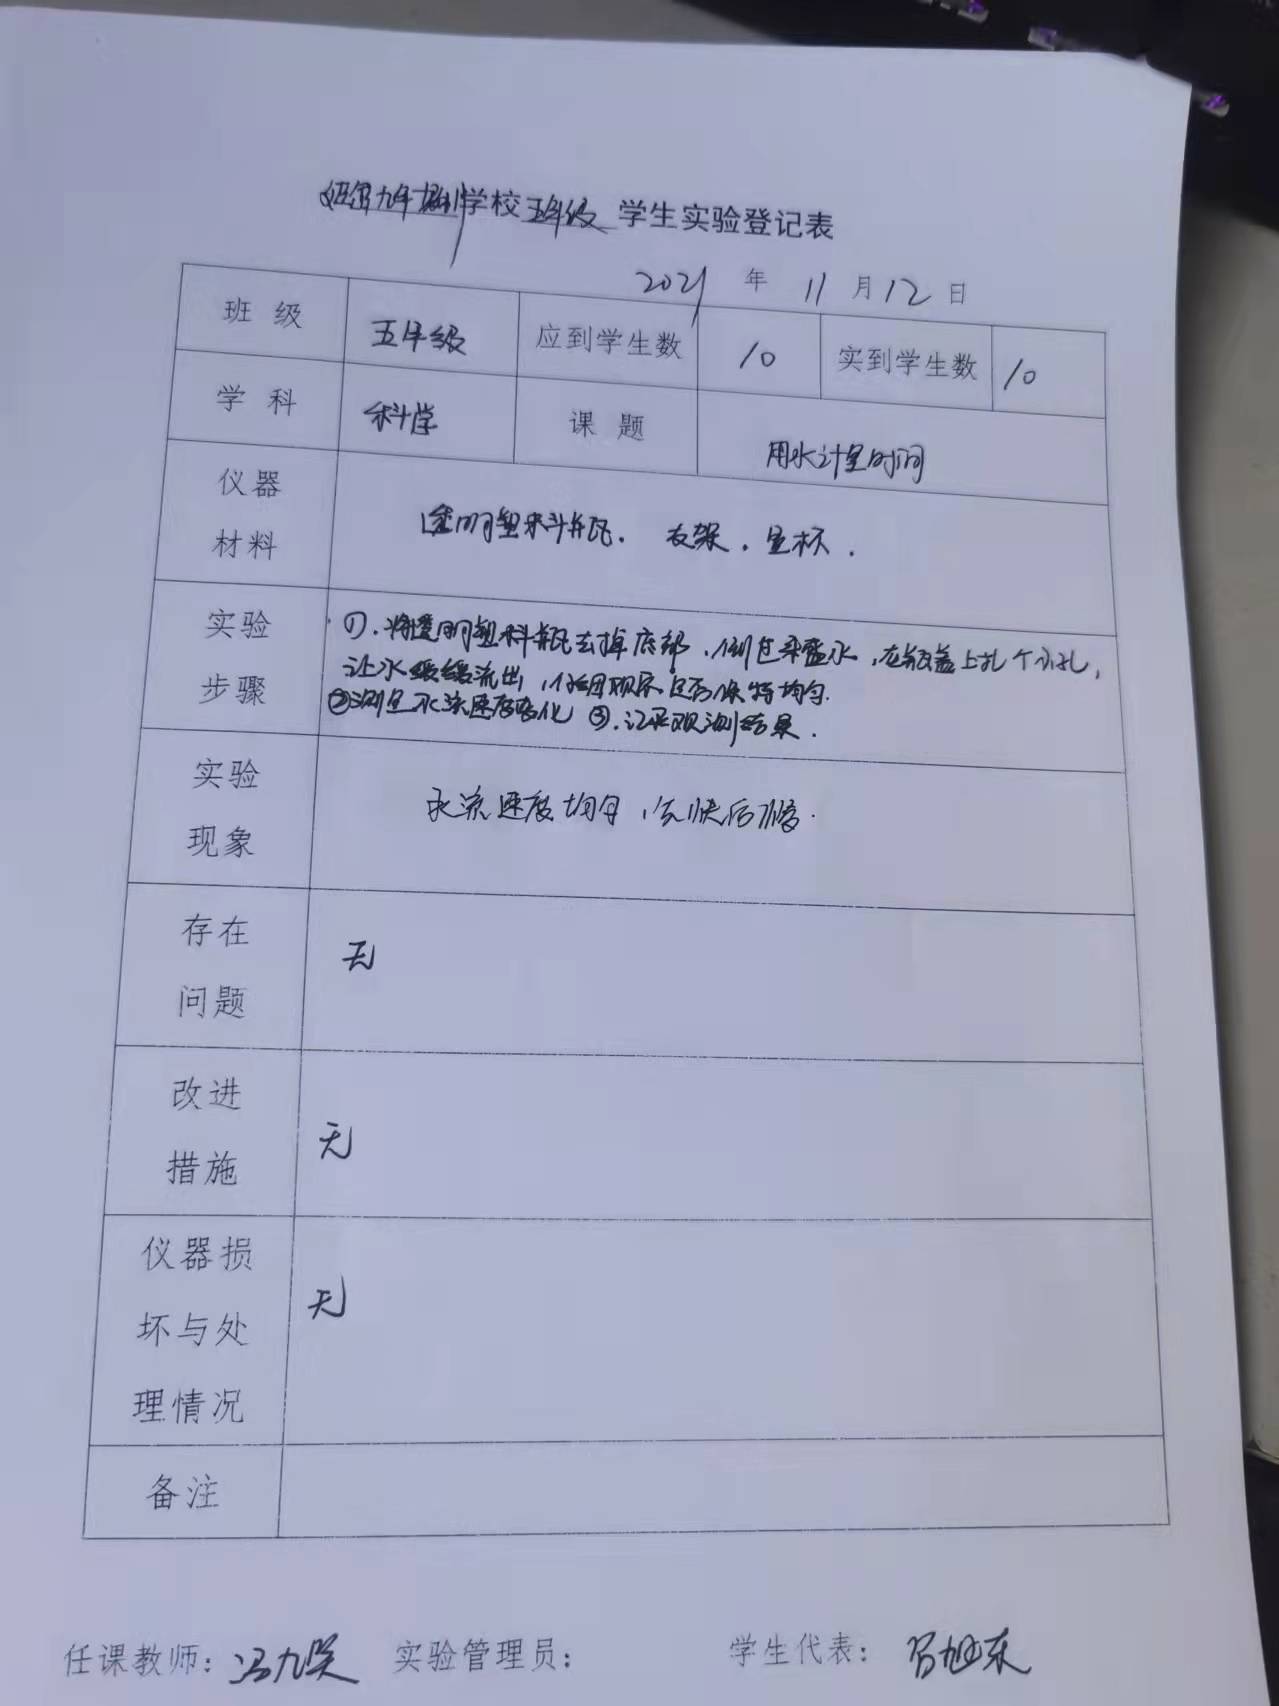 九年制学校五年级学生实验登记表
2021年11月12日
班级 五年级 应到学生数 10 实到学生数 10
学科 科学 课题 用水计量时间
仪器材料 透明塑料瓶.支架.量杯.
实验步骤 ①.将透明塑料瓶去掉底部,倒过来盛水,在瓶盖上扎个小孔,
让水缓缓流出,仔细观察是否保持均匀.
②测量水流速度变化③.记录观测结果.
实验现象 水流速度均匀,先快后慢.
存在问题 无
改进措施 无
仪器损坏与处理情况 无
备注
任课教师: 冯九 实验管理员: 学生代表: 旭东